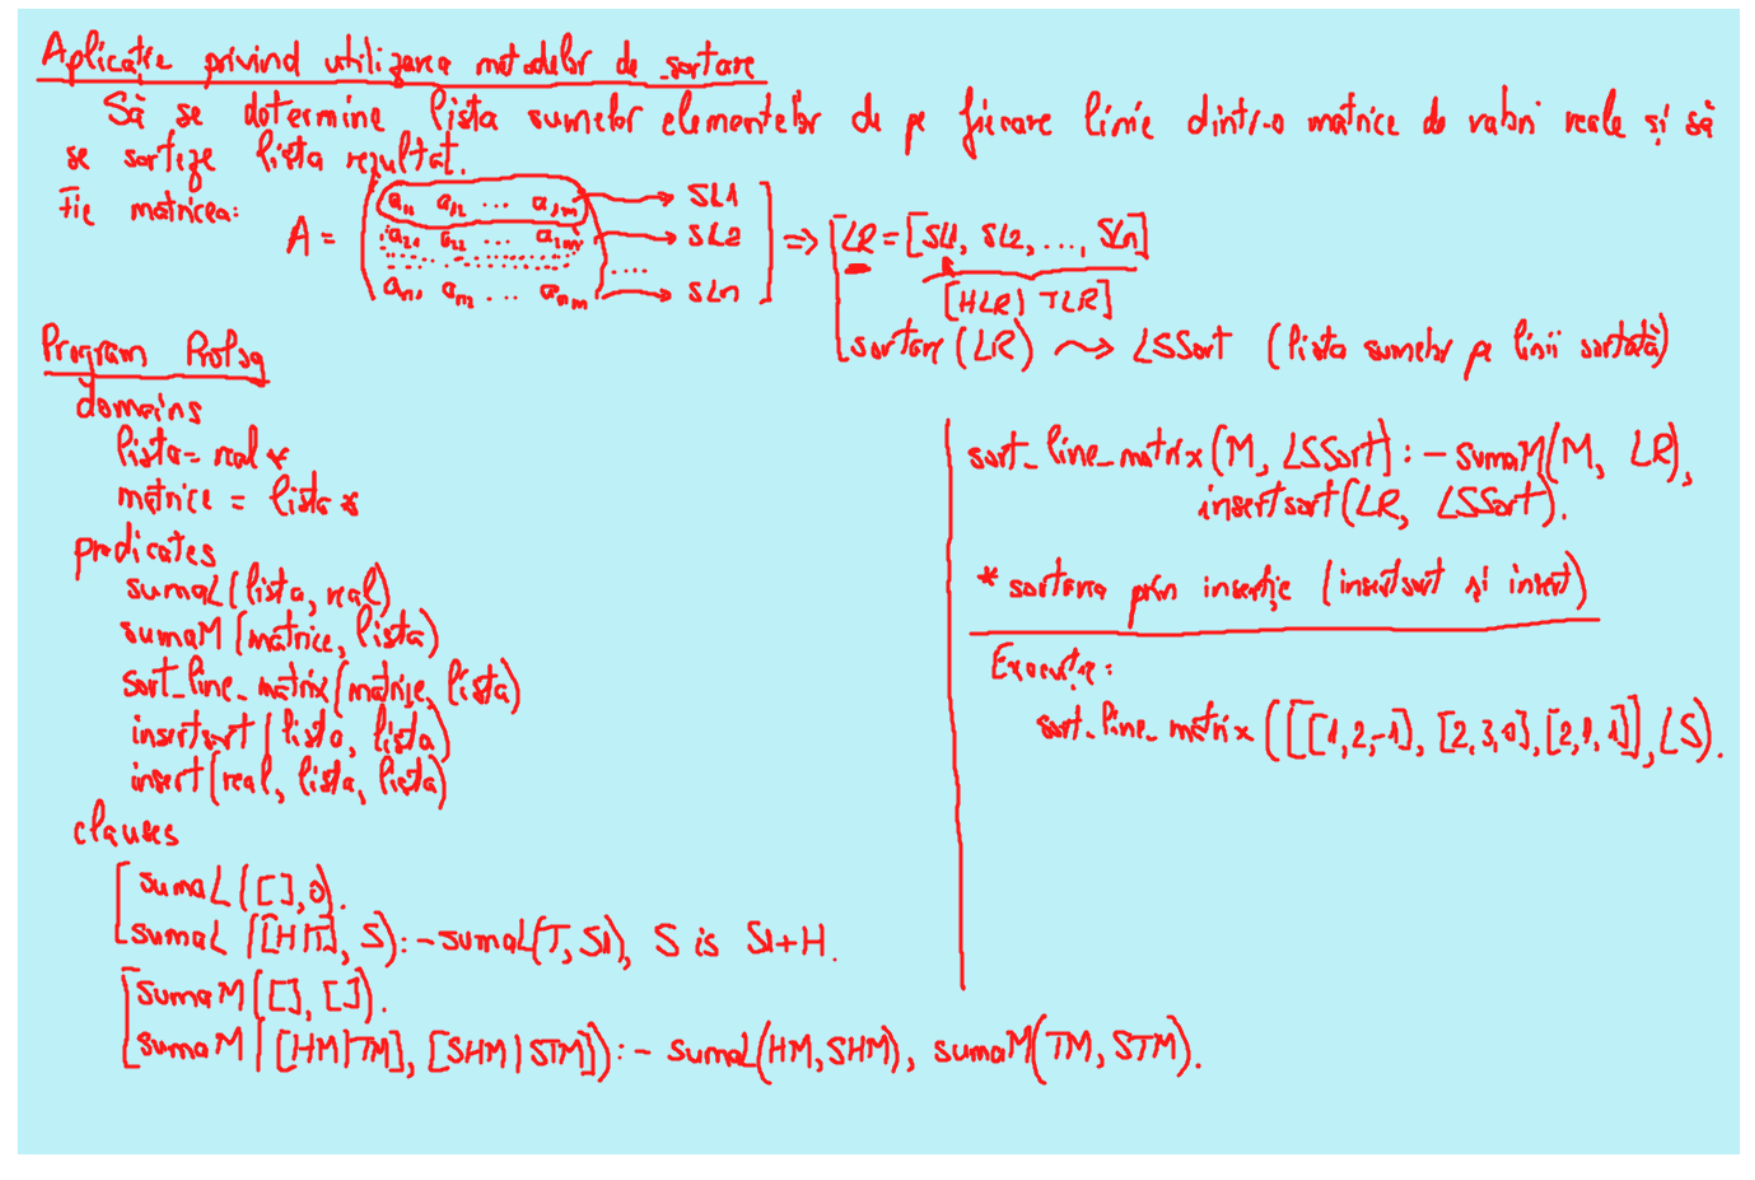 Aplicație privind utilizarea metodelor de sortare
Să se determine lista sumelor elementelor de pe fiecare linie dintr-o matrice de valori reale și să
se sorteze lista rezultat.
Fie matricea:
A =
a11 a12 ... a1m → SL1
a21 a22 ... a2m → SL2
....
an1 an2 ... anm → SLn
=> LR = [SL1, SL2, ..., SLn]
[HLR| TLR]
sortare (LR) ⇝ LSSort (lista sumelor pe linii sortată)
Program Prolog
domains
lista = real *
matrice = lista *
predicates
sumaL(lista, real)
sumaM(matrice, lista)
sort_line_matrix(matrice, lista)
insertsort(lista, lista)
insert(real, lista, lista)
clauses
sumaL([],0).
sumaL([H|T], S):-sumaL(T,S1), S is S1+H.
SumaM([], []).
sumaM([HM|TM], [SHM|STM]):- sumaL(HM,SHM), sumaM(TM, STM).
sort_line_matrix(M, LSSort):-sumaM(M, LR),
insertsort(LR, LSSort).
* sortarea prin inserție (insertsort și insert)
Execuție:
sort_line_matrix([[1,2,-1], [2,3,0],[2,1,1]],LS).